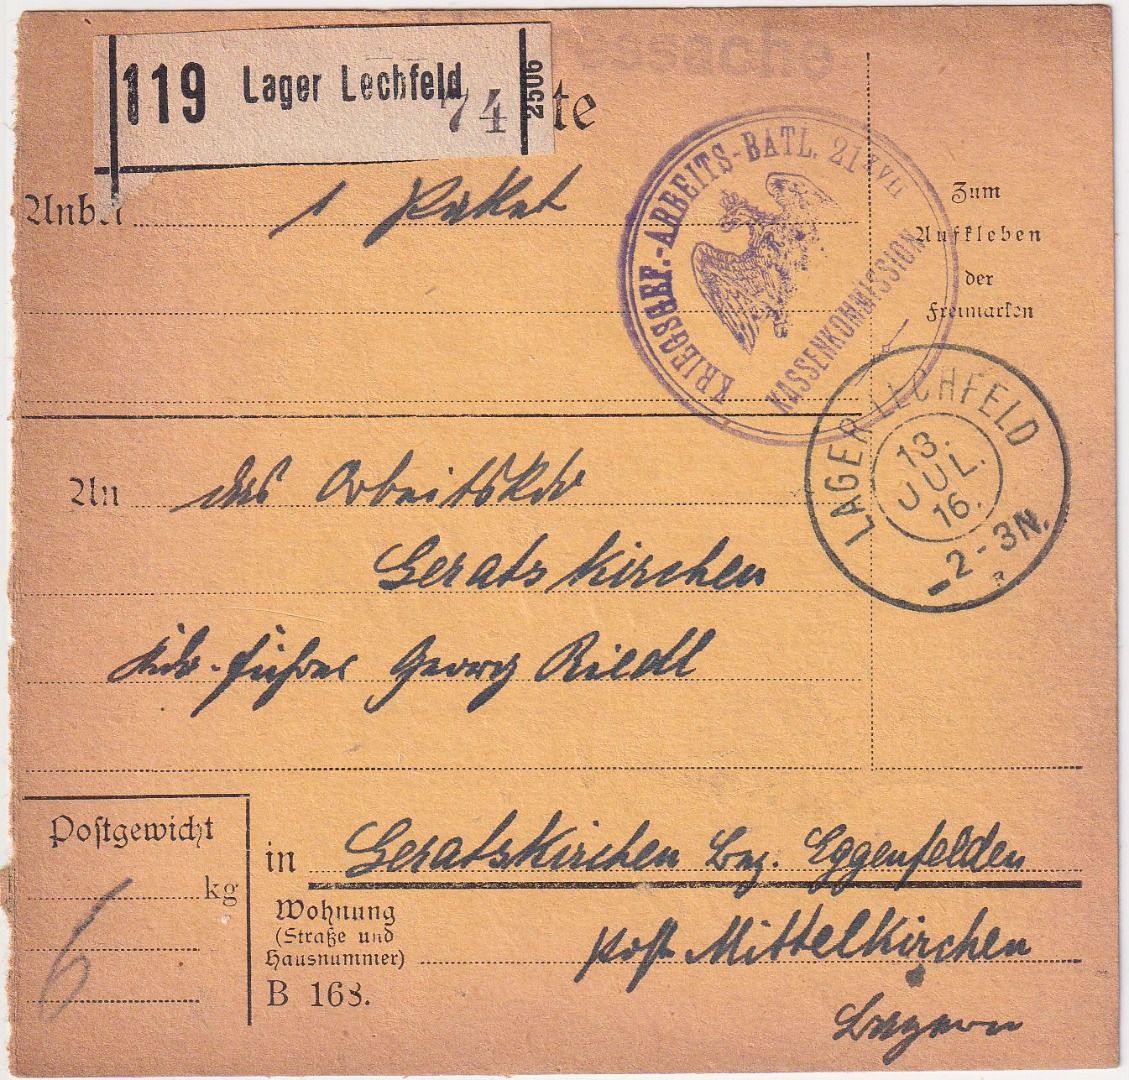 essache
119 Lager Lechfeld
74
2506
te
KRIEGSGEF.-ARBEITS-BATL. 21
KASSENKOMMISSION
Anbei 1 Paket
Zum
Aufkleben
der
Freimarken
LAGER LECHFELD
13.
JUL.
16.
2-3N.
An das Arbeitskdo
Geratskirchen
Kdo-führer Georg Riedl
Postgewicht
kg
6
in Geratskirchen Bez. Eggenfelden
Wohnung
(Straße und
Hausnummer)
Post Mittelkirchen
B 168.
Bayern